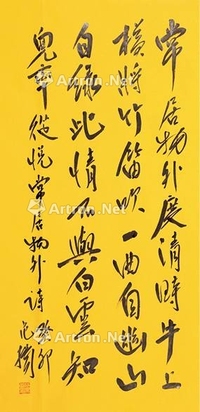 常居物外度清時牛上
橫將竹笛吹一曲自幽山
自綠此情不與白雲知
兜率從悅常居物外詩 癸卯
Artron.Net
Artron.Net